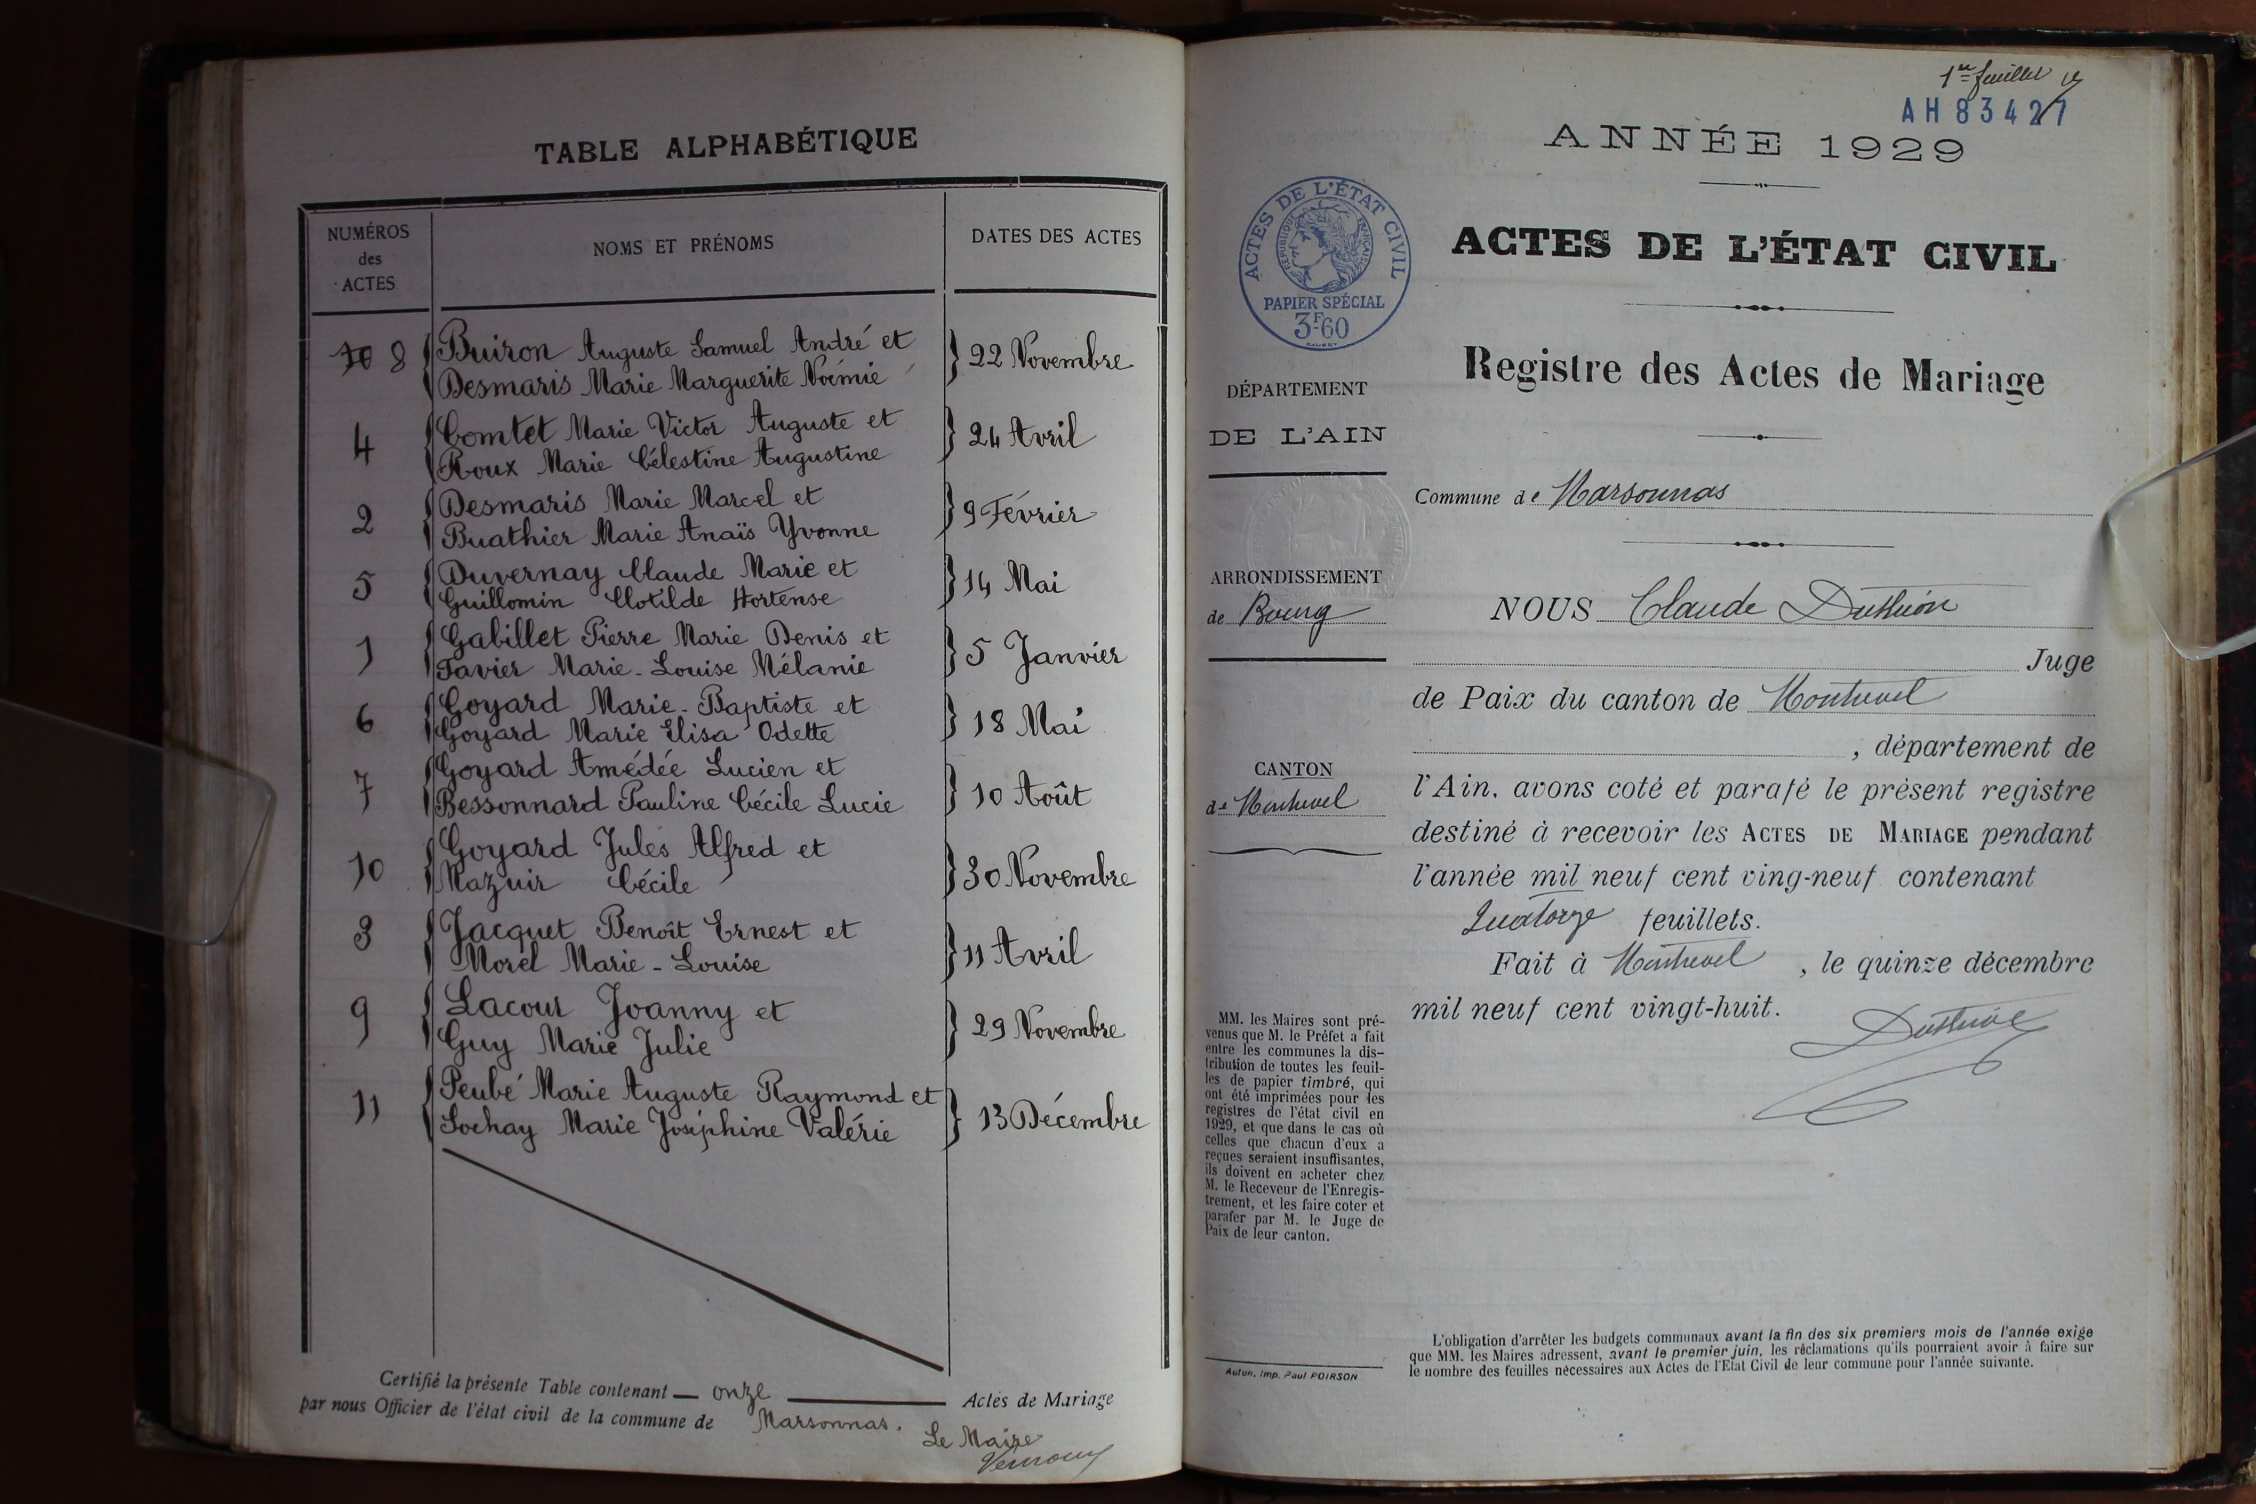 TABLE ALPHABÉTIQUE
NUMÉROS des ACTES
NOMS ET PRÉNOMS
DATES DES ACTES
10 8 Buiron Auguste Samuel André et
Desmaris Marie Marguerite Noémie
22 Novembre
4 Comtet Marie Victor Auguste et
Roux Marie Célestine Augustine
24 Avril
2 Desmaris Marie Marcel et
Buathier Marie Anaïs Yvonne
9 Février
5 Duvernay Claude Marie et
Guillomin Clotilde Hortense
14 Mai
1 Gabillet Pierre Marie Denis et
Favier Marie-Louise Mélanie
5 Janvier
6 Goyard Marie-Baptiste et
Goyard Marie Elisa Odette
18 Mai
7 Goyard Amédée Lucien et
Bessonnard Pauline Cécile Lucie
10 Août
10 Goyard Jules Alfred et
Mazuir Cécile
30 Novembre
3 Jacquet Benoît Ernest et
Morel Marie-Louise
11 Avril
9 Lacour Joanny et
Guy Marie Julie
29 Novembre
11 Peubé Marie Auguste Raymond et
Sochay Marie Joséphine Valérie
13 Décembre
Certifié la présente Table contenant onze Actes de Mariage
par nous Officier de l'état civil de la commune de Marsonnas.
Le Maire
1er feuillet
AH 83427
ANNÉE 1929
ACTES DE L'ÉTAT CIVIL
RÉPUBLIQUE FRANÇAISE
PAPIER SPÉCIAL
3F60
ACTES DE L'ÉTAT CIVIL
Registre des Actes de Mariage
DÉPARTEMENT
DE L'AIN
Commune de Marsonnas
ARRONDISSEMENT
de Bourg
CANTON
de Montrevel
NOUS Claude
Juge
de Paix du canton de Montrevel
, département de
l'Ain, avons coté et parafé le présent registre
destiné à recevoir les ACTES DE MARIAGE pendant
l'année mil neuf cent ving-neuf contenant
Quatorze feuillets.
Fait à Montrevel, le quinze décembre
mil neuf cent vingt-huit.
MM. les Maires sont pré-
venus que M. le Préfet a fait
entre les communes la dis-
tribution de toutes les feuil-
les de papier timbré, qui
ont été imprimées pour les
registres de l'état civil en
1929, et que dans le cas où
celles que chacun d'eux a
reçues seraient insuffisantes,
ils doivent en acheter chez
M. le Receveur de l'Enregis-
trement, et les faire coter et
parafer par M. le Juge de
Paix de leur canton.
Autun, Imp. Paul POIRSON
L'obligation d'arrêter les budgets communaux avant la fin des six premiers mois de l'année exige
que MM. les Maires adressent, avant le premier juin, les réclamations qu'ils pourraient avoir à faire sur
le nombre des feuilles nécessaires aux Actes de l'Etat Civil de leur commune pour l'année suivante.